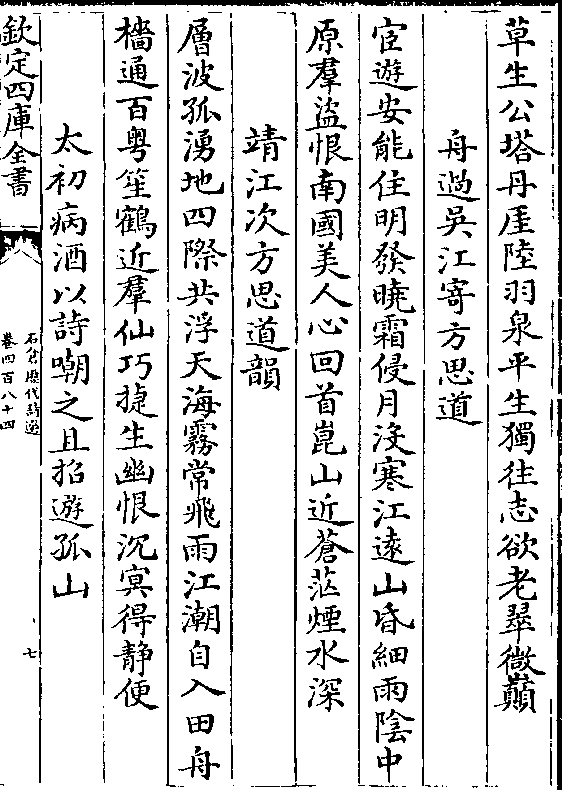 草生公塔丹厓陸羽泉平生獨往志欲老翠微巔
舟過吳江寄方思道
宦遊安能住明發曉霜侵月沒寒江遠山昏細雨陰中
原羣盜恨南國美人心回首崑山近蒼茫煙水深
靖江次方思道韻
層波孤湧地四際共浮天海霧常飛雨江潮自入田舟
檣通百粤笙鶴近羣仙巧捷生幽恨沉㝠得静便
太初病酒以詩嘲之且招遊孤山
欽定四庫全書
石倉歷代詩選
卷四百八十四
七